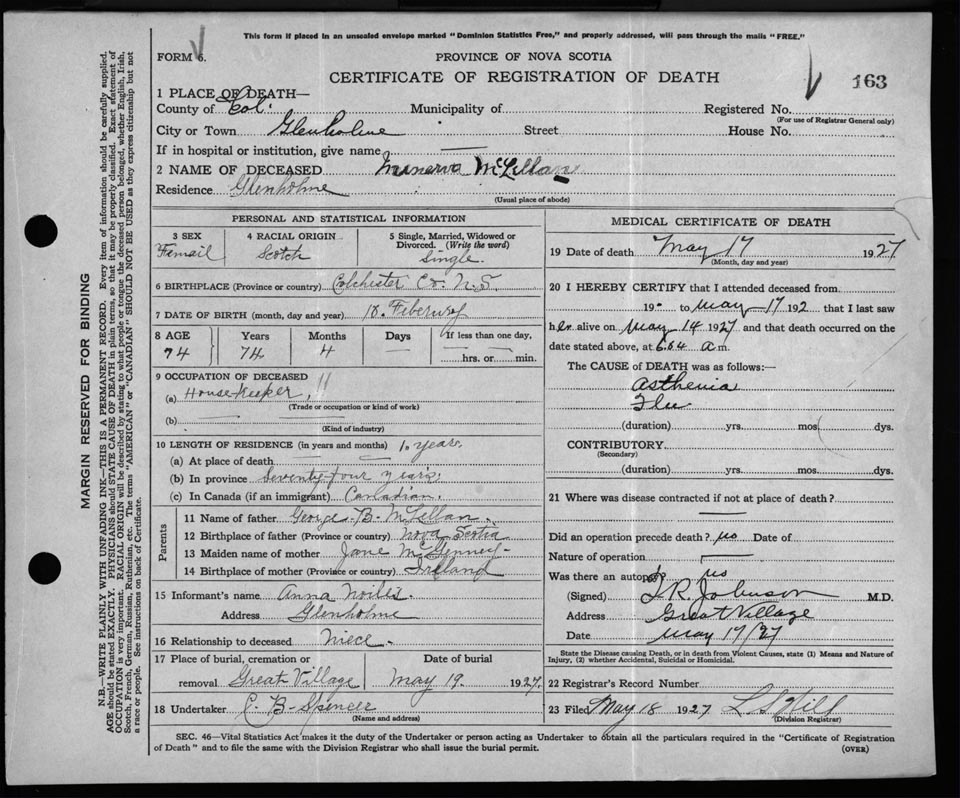 This form if placed in an unsealed envelope marked "Dominion Statistics Free," and properly addressed, will pass through the mails "FREE."
FORM 6.
PROVINCE OF NOVA SCOTIA
CERTIFICATE OF REGISTRATION OF DEATH
163
1 PLACE OF DEATH—
County of Col. Municipality of Registered No.
(For use of Registrar General only)
City or Town Glenholme Street House No.
If in hospital or institution, give name —
2 NAME OF DECEASED Minerva McLellan
Residence Glenholme
(Usual place of abode)
PERSONAL AND STATISTICAL INFORMATION
3 SEX 4 RACIAL ORIGIN 5 Single, Married, Widowed or
Divorced. (Write the word)
Femail Scotch Single.
6 BIRTHPLACE (Province or country) Colchester Co. N.S.
7 DATE OF BIRTH (month, day and year) 18. Feberury
8 AGE Years Months Days If less than one day,
74 74 4 — hrs. or min.
9 OCCUPATION OF DECEASED
(a) House-keeper,
(Trade or occupation or kind of work)
(b)
(Kind of industry)
10 LENGTH OF RESIDENCE (in years and months) years
(a) At place of death
(b) In province Seventy-four years
(c) In Canada (if an immigrant) Canadian.
Parents
11 Name of father George B. McLellan.
12 Birthplace of father (Province or country) Nova Scotia
13 Maiden name of mother Jane
14 Birthplace of mother (Province or country) Ireland
15 Informant's name Anna
Address Glenholme
16 Relationship to deceased Niece.
17 Place of burial, cremation or Date of burial
removal Great Village May 19. 1927.
18 Undertaker C. B. Spencer
(Name and address)
MEDICAL CERTIFICATE OF DEATH
19 Date of death May 17 1927
(Month, day and year)
20 I HEREBY CERTIFY that I attended deceased from
19 - to May 17 192 that I last saw
her alive on May 14 1927 and that death occurred on the
date stated above, at a m.
The CAUSE of DEATH was as follows:
Asthenia
Flu
(duration) yrs. mos. dys.
CONTRIBUTORY
(Secondary)
(duration) yrs. mos. dys.
21 Where was disease contracted if not at place of death?
—
Did an operation precede death? no Date of
Nature of operation
Was there an autopsy? no
(Signed) Johnson M.D.
Address Great Village
Date May 17/27
State the Disease causing Death, or in death from Violent Causes, state (1) Means and Nature of
Injury, (2) whether Accidental, Suicidal or Homicidal.
22 Registrar's Record Number
23 Filed May 18 1927 Hill
(Division Registrar)
SEC. 46—Vital Statistics Act makes it the duty of the Undertaker or person acting as Undertaker to obtain all the particulars required in the "Certificate of Registration
of Death" and to file the same with the Division Registrar who shall issue the burial permit.
(OVER)
MARGIN RESERVED FOR BINDING
N.B.—WRITE PLAINLY WITH UNFADING INK—THIS IS A PERMANENT RECORD. Every item of information should be carefully supplied.
AGE should be stated EXACTLY. PHYSICIANS should STATE CAUSE OF DEATH in plain terms, so that it may be properly classified. Exact statement of
OCCUPATION is very important. RACIAL ORIGIN will be described by stating to what people or tongue the deceased person belonged, whether English, Irish,
Scotch, French, German, Russian, Ruthenian, etc. The terms "AMERICAN" or "CANADIAN" SHOULD NOT BE USED as they express citizenship but not
a race or people. See instructions on back of Certificate.